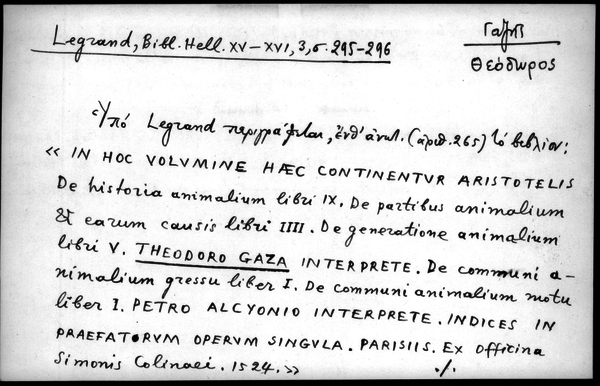 Legrand, Bibl. Hell. XV–XVI, 3, σ. 295–296
Γαζῆς
Θεόδωρος
Ὑπό Legrand περιγράφεται, ἐνθ' ἀνωτ. (ἀριθ. 265) τό βιβλίον:
« IN HOC VOLVMINE HÆC CONTINENTVR ARISTOTELIS
De historia animalium libri IX. De partibus animalium
& earum causis libri IIII. De generatione animalium
libri V. THEODORO GAZA INTERPRETE. De communi a-
nimalium gressu liber I. De communi animalium motu
liber I. PETRO ALCYONIO INTERPRETE. INDICES IN
PRAEFATORVM OPERVM SINGVLA. PARISIIS. Ex officina
Simonis Colinaei. 1524. » ./.